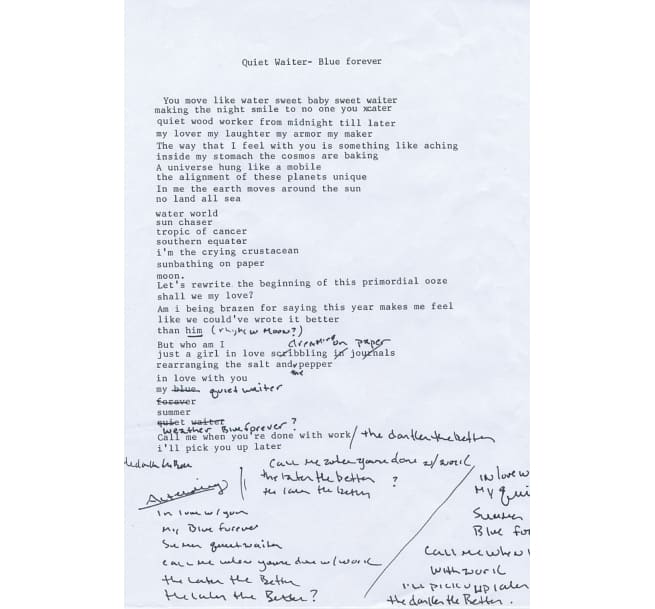 Quiet Waiter- Blue forever
You move like water sweet baby sweet waiter
making the night smile to no one you xcater
quiet wood worker from midnight till later
my lover my laughter my armor my maker
The way that I feel with you is something like aching
inside my stomach the cosmos are baking
A universe hung like a mobile
the alignment of these planets unique
In me the earth moves around the sun
no land all sea
water world
sun chaser
tropic of cancer
southern equator
i'm the crying crustacean
sunbathing on paper
moon.
Let's rewrite the beginning of this primordial ooze
shall we my love?
Am i being brazen for saying this year makes me feel
like we could've wrote it better
than him (rhyme w moon?)
But who am I
dreaming on paper
just a girl in love scribbling in journals
rearranging the salt and pepper
the
in love with you
my blue quiet waiter
forever
summer
quiet waiter
weather Blue forever?
Call me when you're done with work/ the darker the better
i'll pick you up later
Call me when youre done w/ work
the later the better ?
the later the better
In love w/ you
My Blue forever
quiet waiter
call me when youre done w/ work
the later the Better
the later the Better?
in love w
My Qui
Summer
Blue for
Call me when
with work
i'll pick u up later
the darker the Better